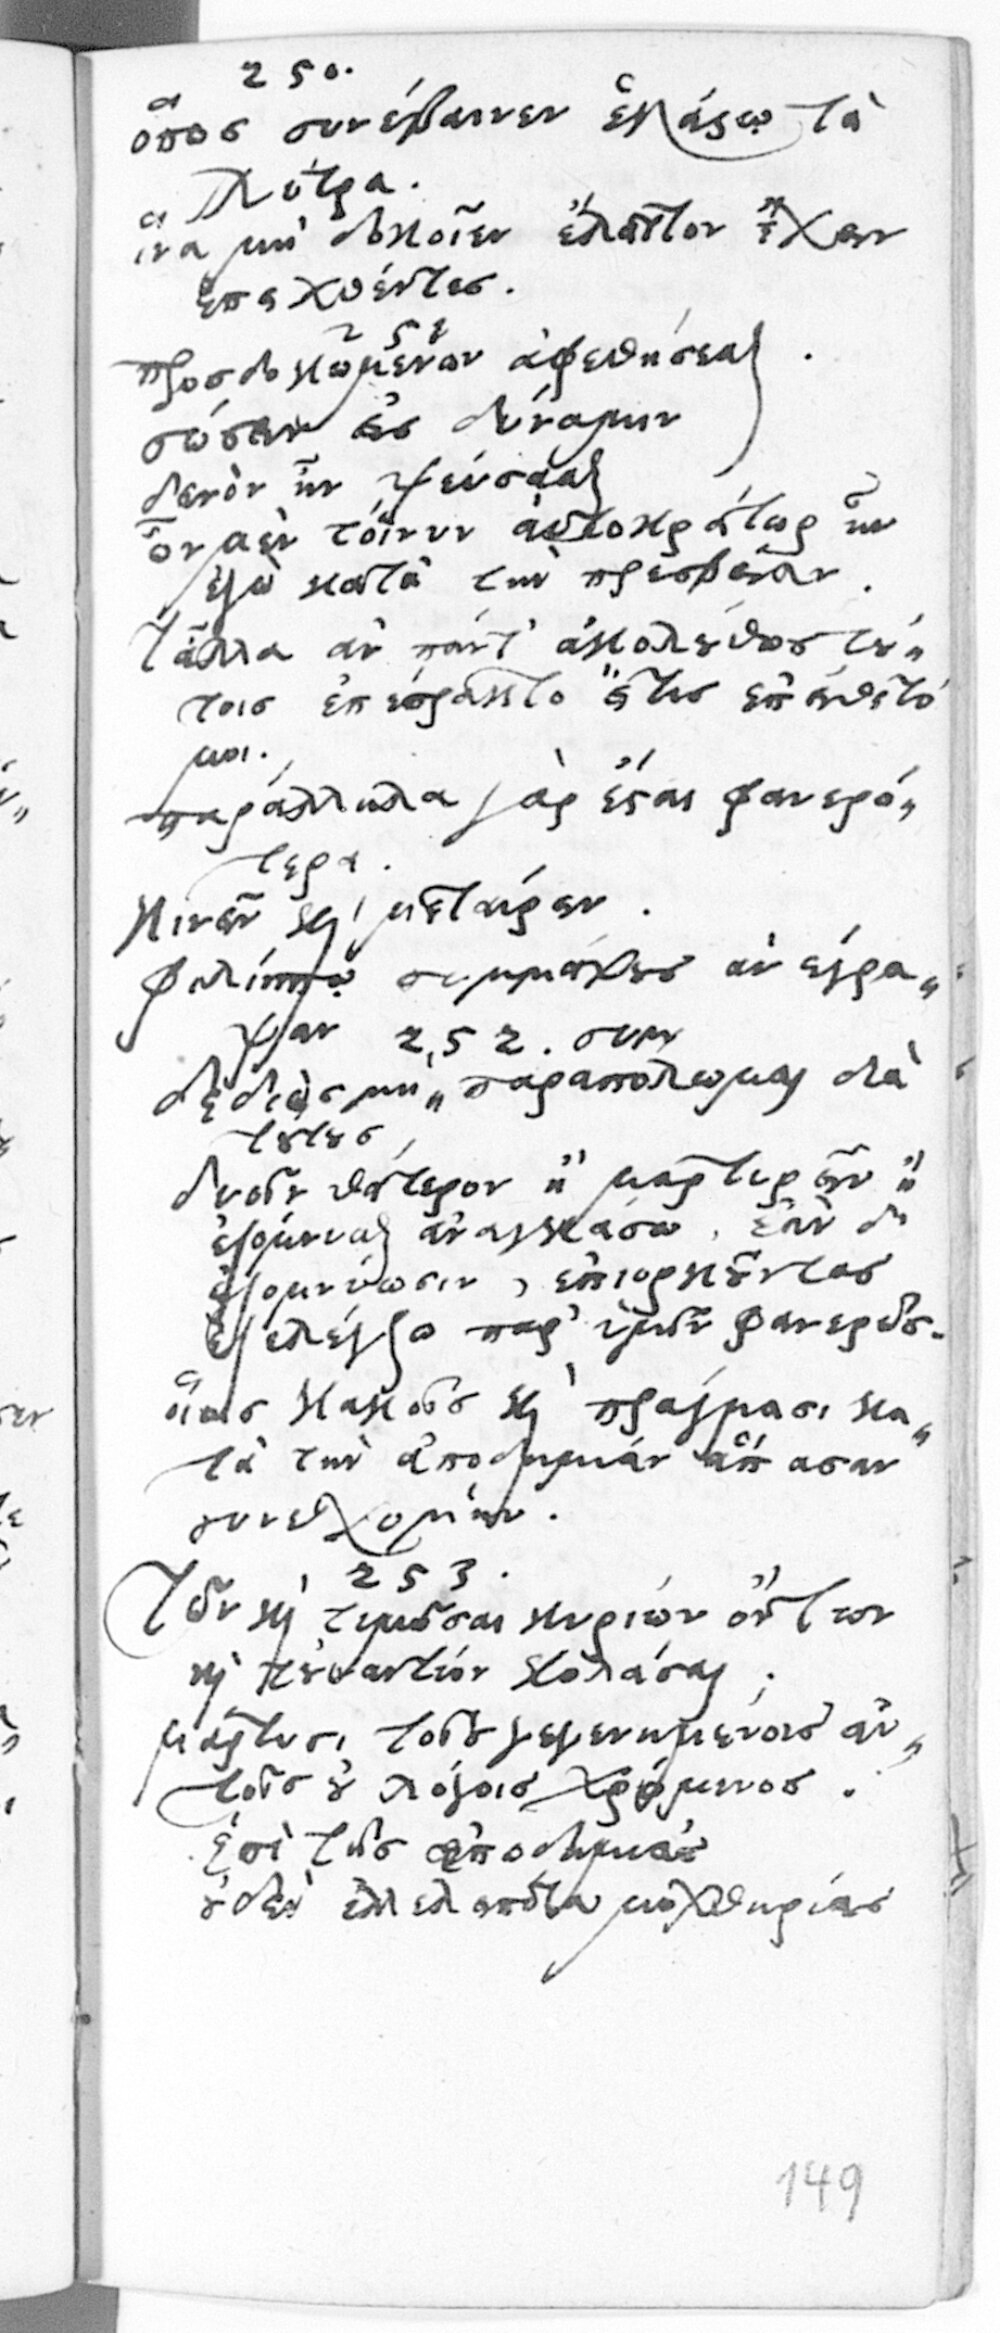 250.
ὅπως συνέβαινεν ἑκάστῳ τὰ
λύτρα.
ἵνα μὴ δοκοῖεν ἔλαττον ἔχειν
ἐπαχθέντες.
251
προσδοκωμένων ἀφεθήσεσθαι.
σώσειν εἰς δύναμιν
δεινὸν ἦν ψεύσασθαι
ὧν μὲν τοίνυν αὐτοκράτωρ ἦν
ἐγὼ κατὰ τὴν πρεσβείαν.
τἆλλα ἂν πάντ' ἀκολούθως τού„
τοις ἐπέπρακτο εἴ τις ἐπείθετό
μοι.
παράλληλα γὰρ ἔσται φανερώ„
τερα.
κινεῖν καὶ μεταίρειν.
φιλίππῳ συμμάχους ἀνέγρα„
ψαν 252. συμ
δεδιὼς μὴ„ παραπόλωμαι διὰ
τούτους
δυοῖν θάτερον ἢ μαρτυρεῖν ἢ
ἐξόμνυσθαι ἀναγκάσω, ἐὰν δ'
ἐξομνύωσιν, ἐπιορκοῦντας
ἐξελέγξω παρ' ὑμῖν φανερῶς.
οἵοις κακοῖς καὶ πράγμασι κα„
τὰ τὴν ἀποδημίαν ἅπασαν
συνειχόμην.
253.
τῶν καὶ τιμῶσαι κυρίων ὄντων
καὶ τοὐναντίον κολάσαι.
μάρτυσι τοῖς γεγενημένοις αὐ„
τοῖς οὐ λόγοις χρώμενος.
ἐπὶ τῆς ἀποδημίας
οὐδὲν ἐλλελοιπότα μοχθηρίας
149